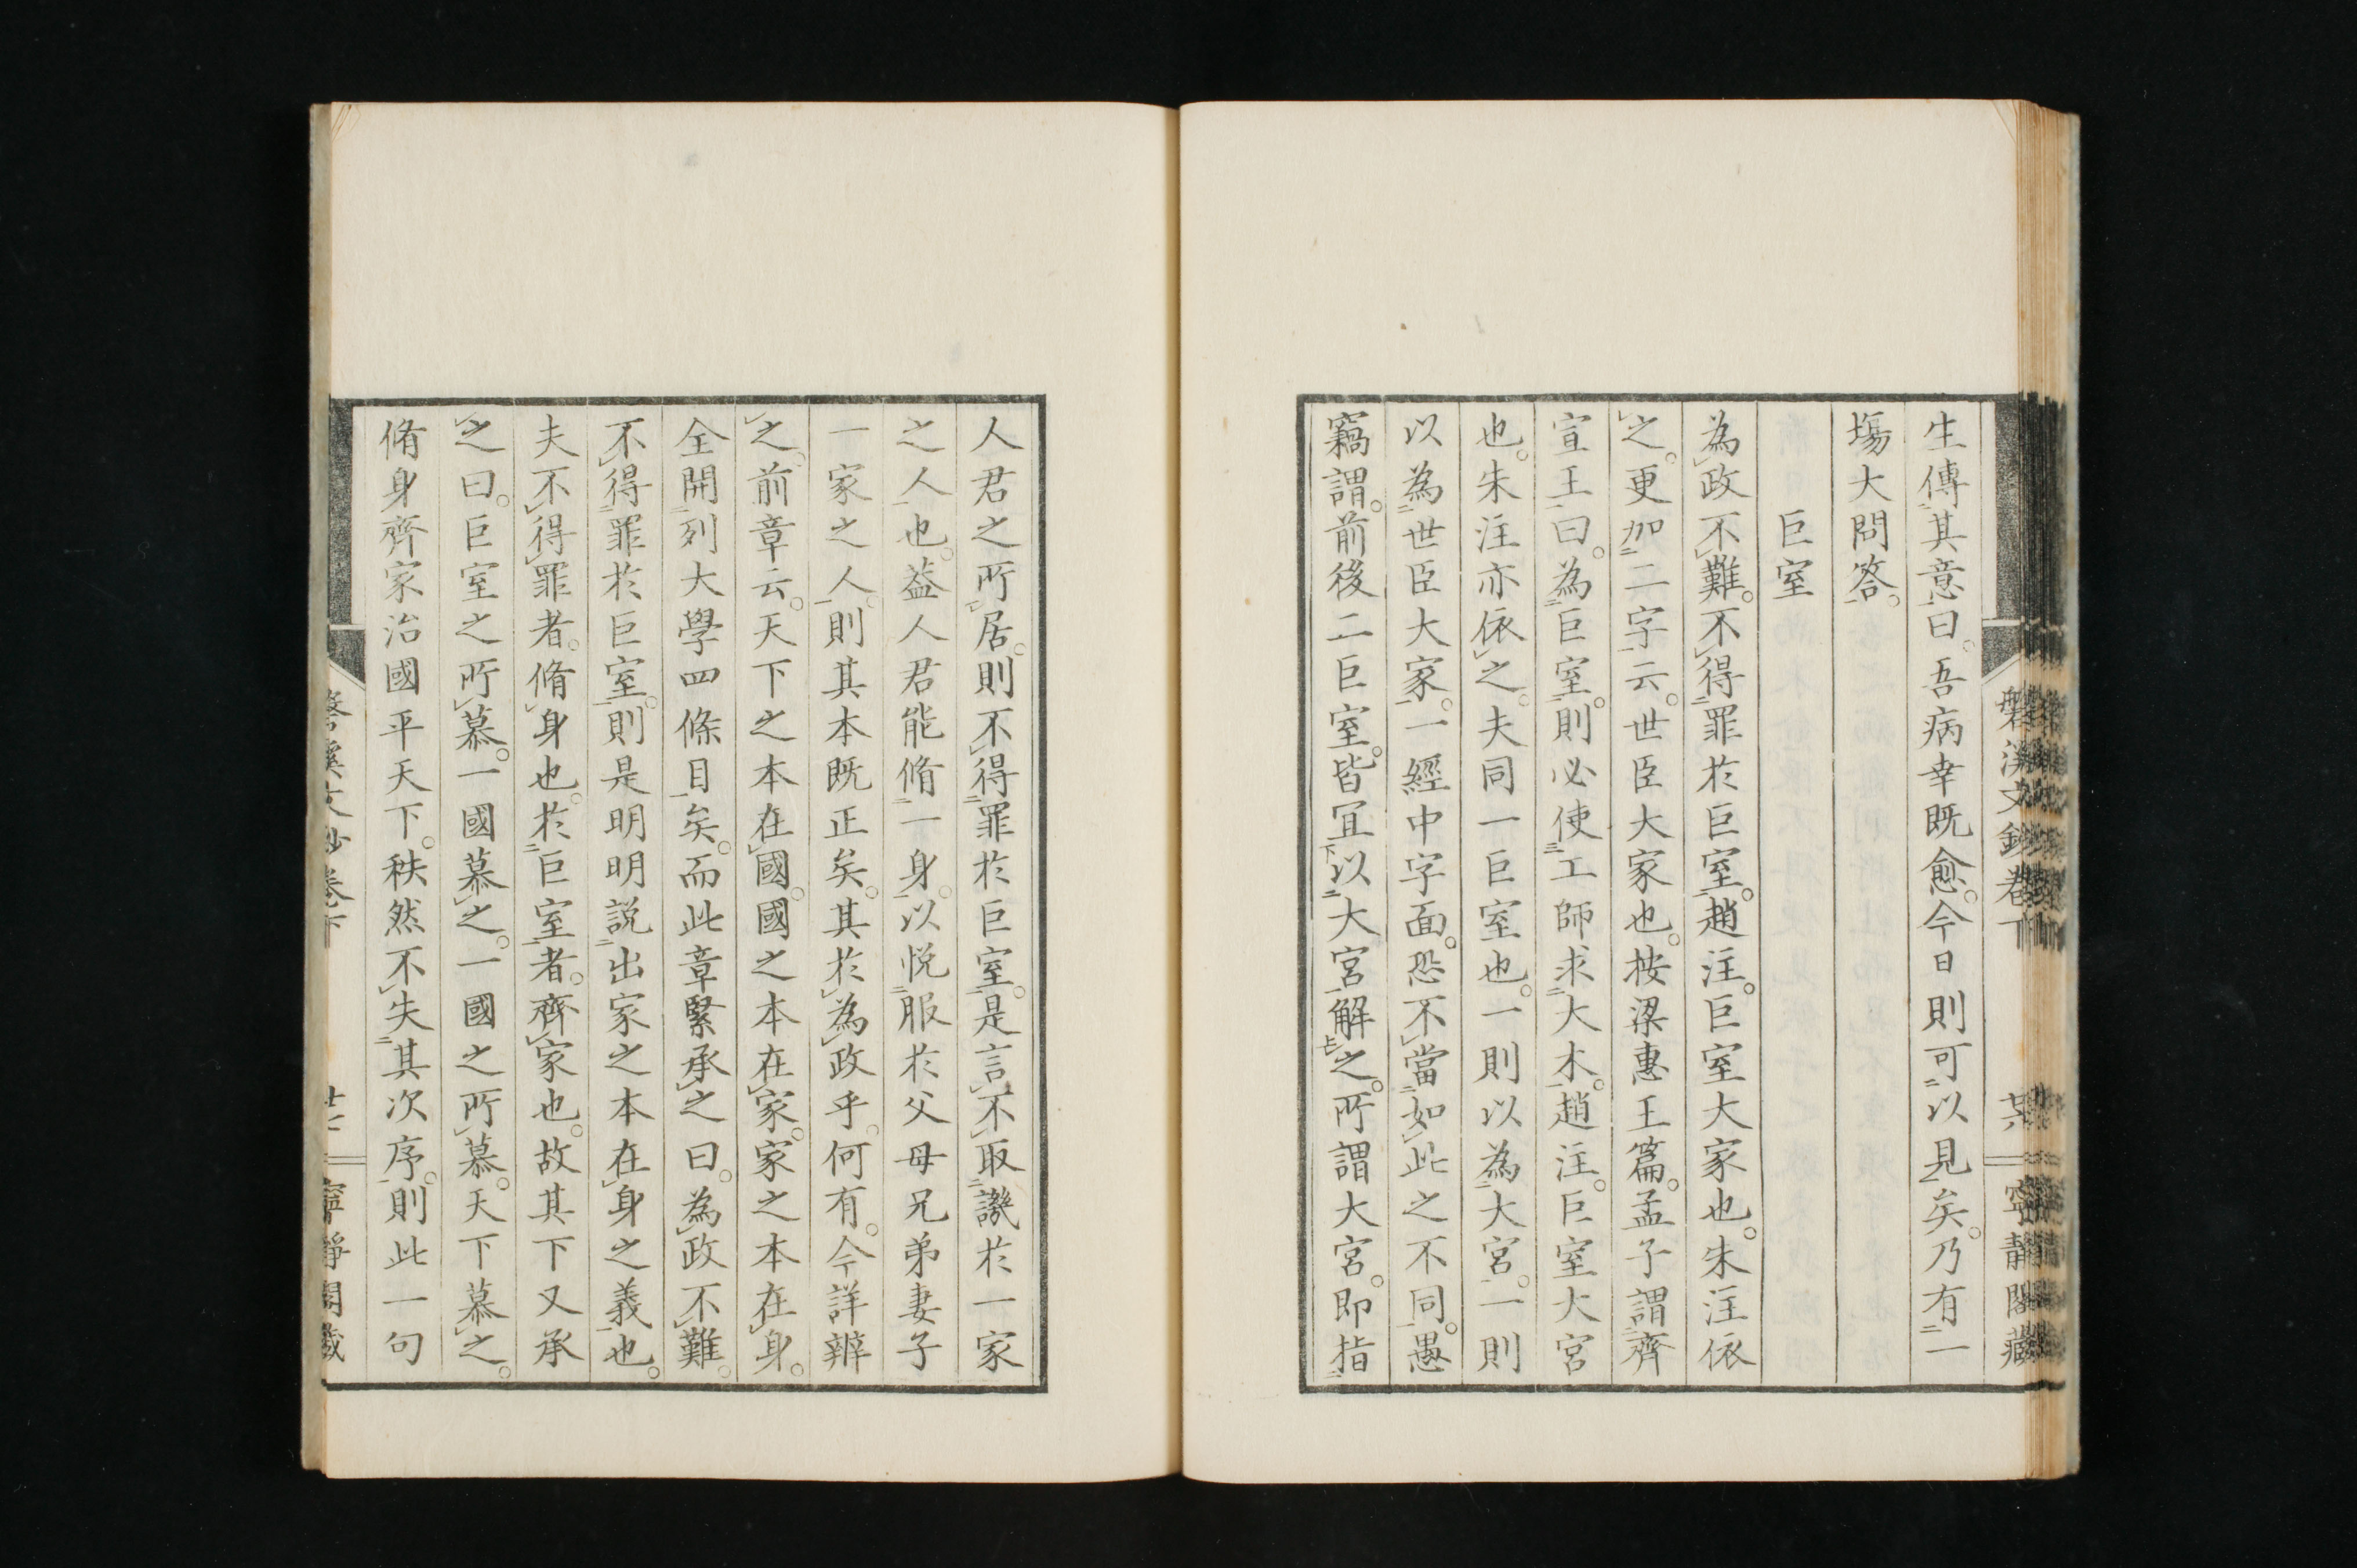 磐溪文鈔卷下
廿六
寧靜閣藏
生傳其意曰。吾病幸既愈。今日則可以見矣。乃有一
塲大問答。
巨室
為政不難。不得罪於巨室。趙注。巨室大家也。朱注依
之。更加二字云。世臣大家也。按梁惠王篇。孟子謂齊
宣王曰。為巨室。則必使工師求大木。趙注。巨室大宮
也。朱注亦依之。夫同一巨室也。一則以為大宮。一則
以為世臣大家。一經中字面。恐不當如此之不同。愚
竊謂。前後二巨室。皆宜以大宮解之。所謂大宮。即指
人君之所居。則不得罪於巨室。是言不取譏於一家
之人也。葢人君能脩一身。以悦服於父母兄弟妻子
一家之人。則其本既正矣。其於為政乎。何有。今詳辨
之。前章云。天下之本在國。國之本在家。家之本在身。
全開列大學四條目矣。而此章緊承之曰。為政不難。
不得罪於巨室。則是明明説出家之本在身之義也。
夫不得罪者。脩身也。於巨室者。齊家也。故其下又承
之曰。巨室之所慕。一國慕之。一國之所慕。天下慕之。
脩身齊家治國平天下。秩然不失其次序。則此一句
磐溪文鈔卷下
寧靜閣藏